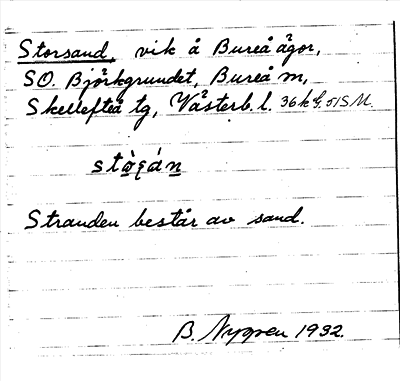 Storsand, vik å Bureå ägor,
SO. Björkgrundet, Bureå m,
Skellefteå tg, Västerb. l. 36 k
Stranden består av sand.
B. Nygren 1932.